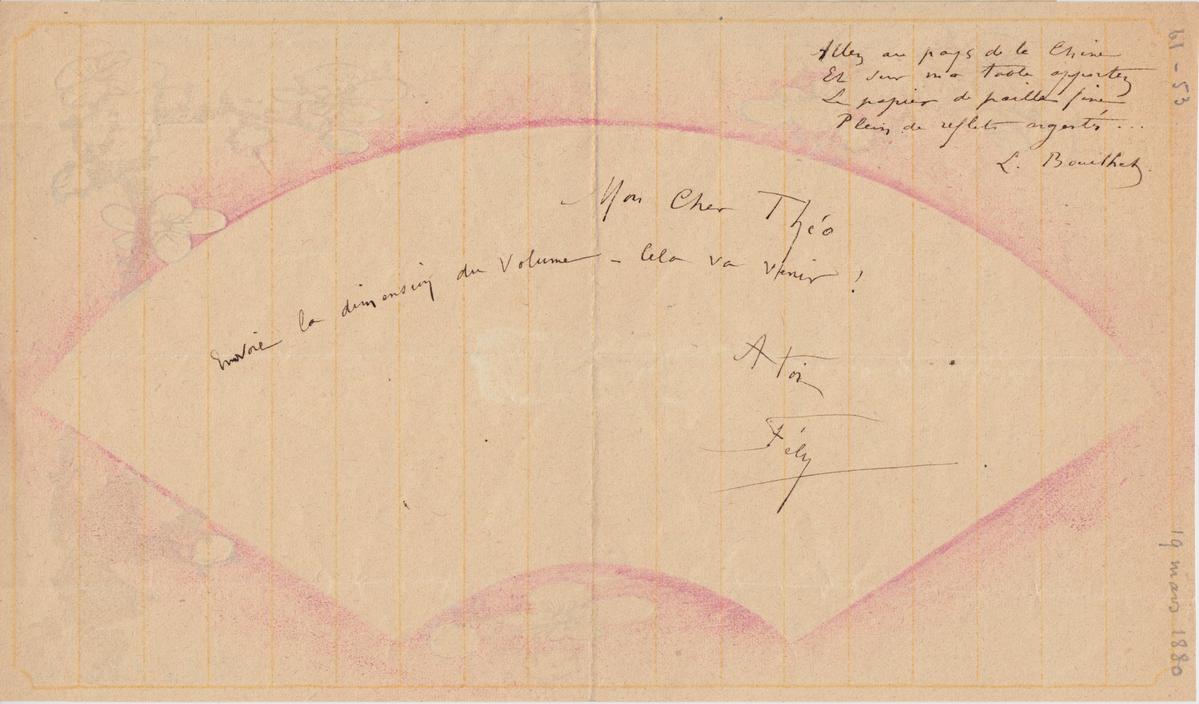 Allez au pays de la Chine
Et sur ma table apportez
Le papier de paille fine
Plein de reflets argentés ...
L. Bouilhet
Mon Cher Théo
Envoie la dimension du Volume - Cela va venir !
A toi
Fély
61-53
19 mars 1880